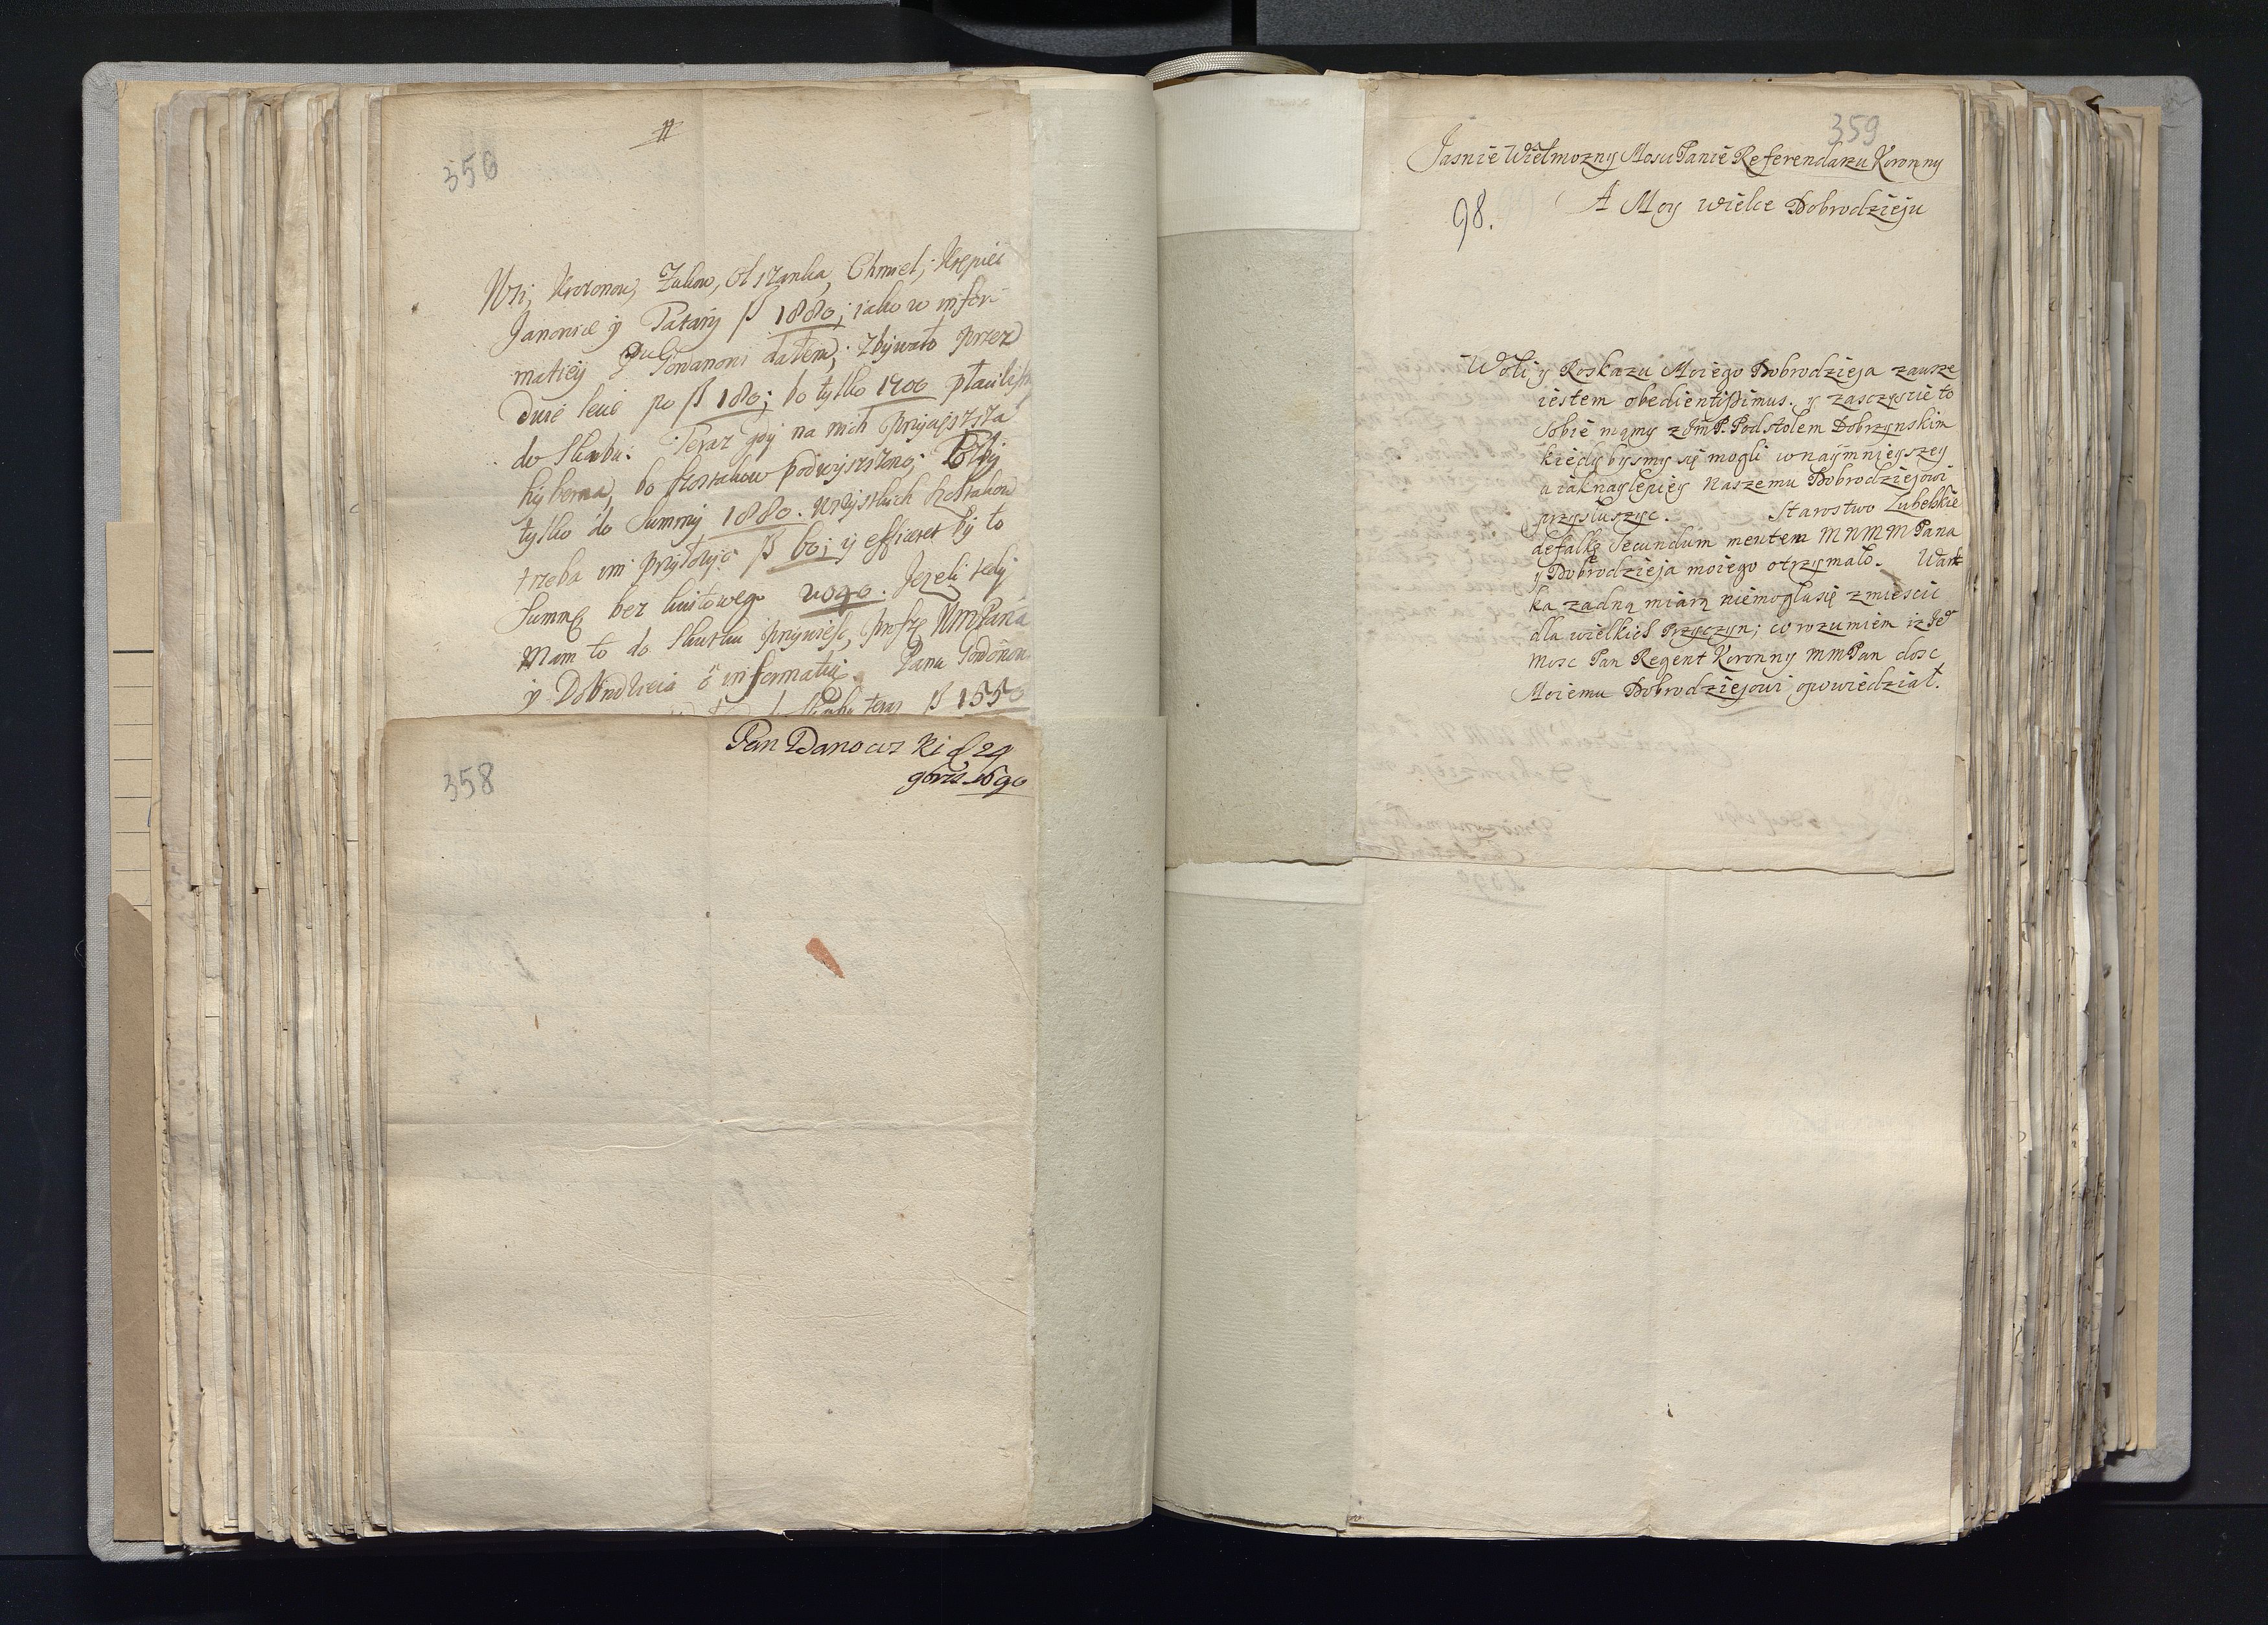 #
356
Wsi, Krzonow, Zukow, Olszanka, Chmiel, Krępiec
Janowice y Patary ß 1880; iako w infor-
matiey Pu Gordanoni dałem; zbywało przez
dwie lecie po ß 180; bo tylko 1700 płacili
do skarbu. Teraz gdy na nich
hyberna, bo szostakow podwyszszono;
tylko do Summy 1880. wszystkich szostakow
trzeba im ß 60; y efficeret by to
Summę bez kwitowego 2090. Jezeli tedy
Mam to do skutku przywiesc, proszę WmPana
y Dobrodzieia o informatią. Panu
teraz ß 1550
Pan Danowski d 29
9bris 1690
358
359
Jasnie Wielmozny Mosci Panie Referendarzu Koronny
A Moy wielce Dobrodzieju
98.
Woli y Roskazu Moiego Dobrodzieja zawsze
iestem obedientissimus. y zasczyscie to
Sobie mamy z JmP. Podstolem Dobrzynskim
kiedy bysmy się mogli w naymnieyszey
a iak naylepiey Naszemu Dobrodziejowi
przysluzyc. Starostwo Lubelskie
defalkę Secundum mentem MMMM Pana
y Dobrodzieja moiego otrzymało. Wark
ka zadną miarą niemogla się zmiescic
dla wielkich Przyczyn; co rozumiem iz Je
Mosc Pan Regent Koronny MMPan dosc
Moiemu Dobrodziejowi opowiedział.